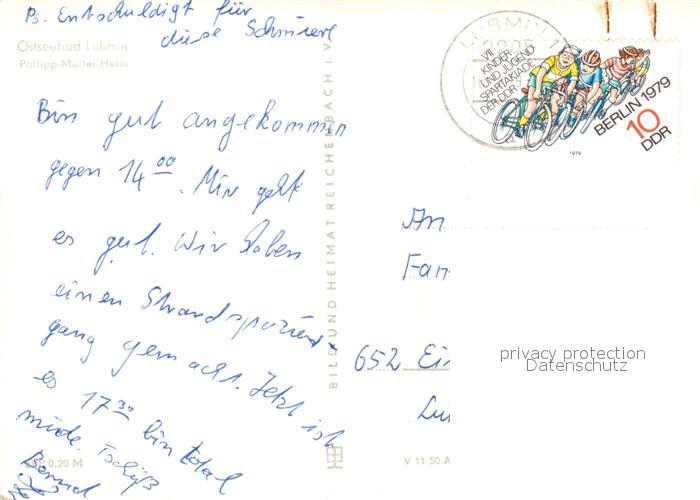 Ps. Entschuldigt für
diese Schmiere
Ostseebad Lubmin
Philipp-Müller-Heim
Bin gut angekommen
gegen 14 00. Mir geht
es gut. Wir haben
einen Strandspazier-
gang gemacht. Jetzt ist
es 17 30 bin total
müde. Tschüß
Bernd
0,20 M
BILD UND HEIMAT REICHENBACH I. V.
V 11 50 A
LUBMIN 1
2205
VII.
KINDER
UND JUGEND
SPARTAKIADE
DER DDR
BERLIN 1979
10
DDR
1979
An
Fam
652 Ei
privacy protection
Datenschutz